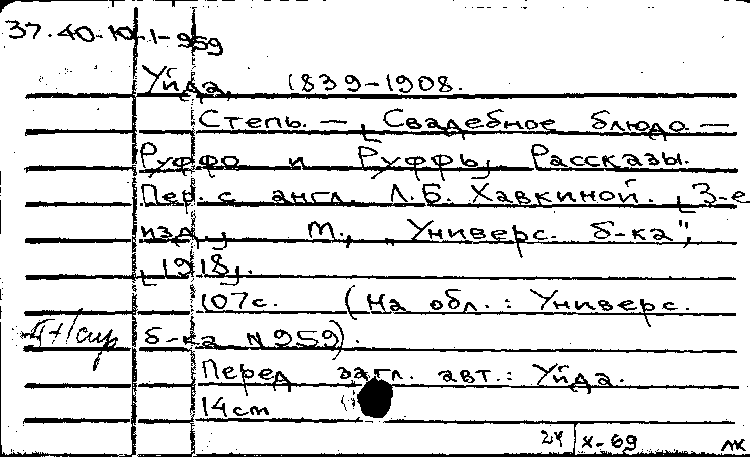 37.40-Ю.1-959
Уйда, 1839-1908.
Степь. — [Свадебное блюдо —
Руффо и Руффь]. Рассказы.
Пер. с англ. Л.Б. Хавкиной. [3-е
изд.], М., "Универс. б-ка",
[1918].
107с. (На обл.: Универс.
б-ка №959).
Перед загл. авт.: Уйда.
14см
24 X-69 ЛК